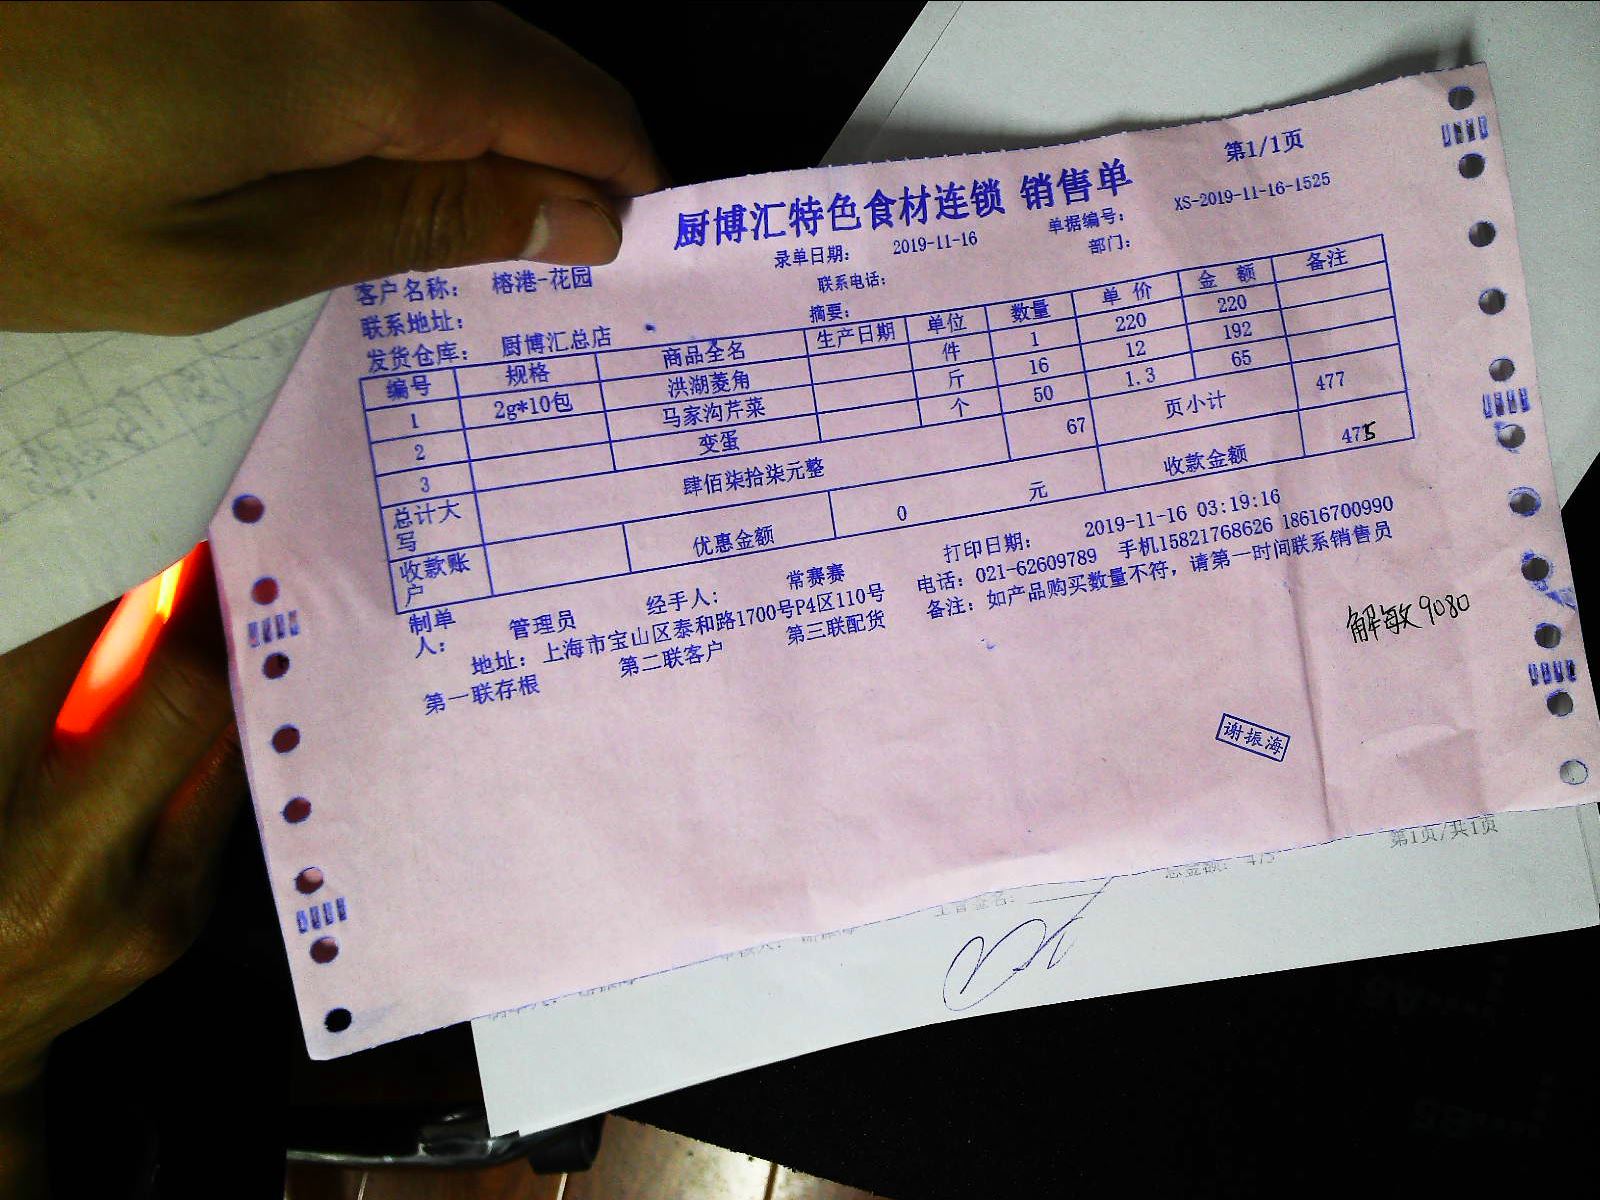 第1/1页
厨博汇特色食材连锁 销售单
录单日期： 2019-11-16 单据编号： XS-2019-11-16-1525
客户名称： 榕港-花园 联系电话： 部门：
联系地址： 摘要：
发货仓库： 厨博汇总店
编号 规格 商品全名 生产日期 单位 数量 单价 金额 备注
1 2g*10包 洪湖菱角 件 1 220 220
2 马家沟芹菜 斤 16 12 192
3 变蛋 个 50 1.3 65
总计大写 肆佰柒拾柒元整 67 页小计 477
收款账户 优惠金额 0 元 收款金额 475
制单人： 管理员 经手人： 常赛赛 打印日期： 2019-11-16 03:19:16
地址：上海市宝山区泰和路1700号P4区110号 电话：021-62609789 手机15821768626 18616700990
第一联存根 第二联客户 第三联配货 备注：如产品购买数量不符，请第一时间联系销售员
解敏9080
谢振海
第1页/共1页
总金额：